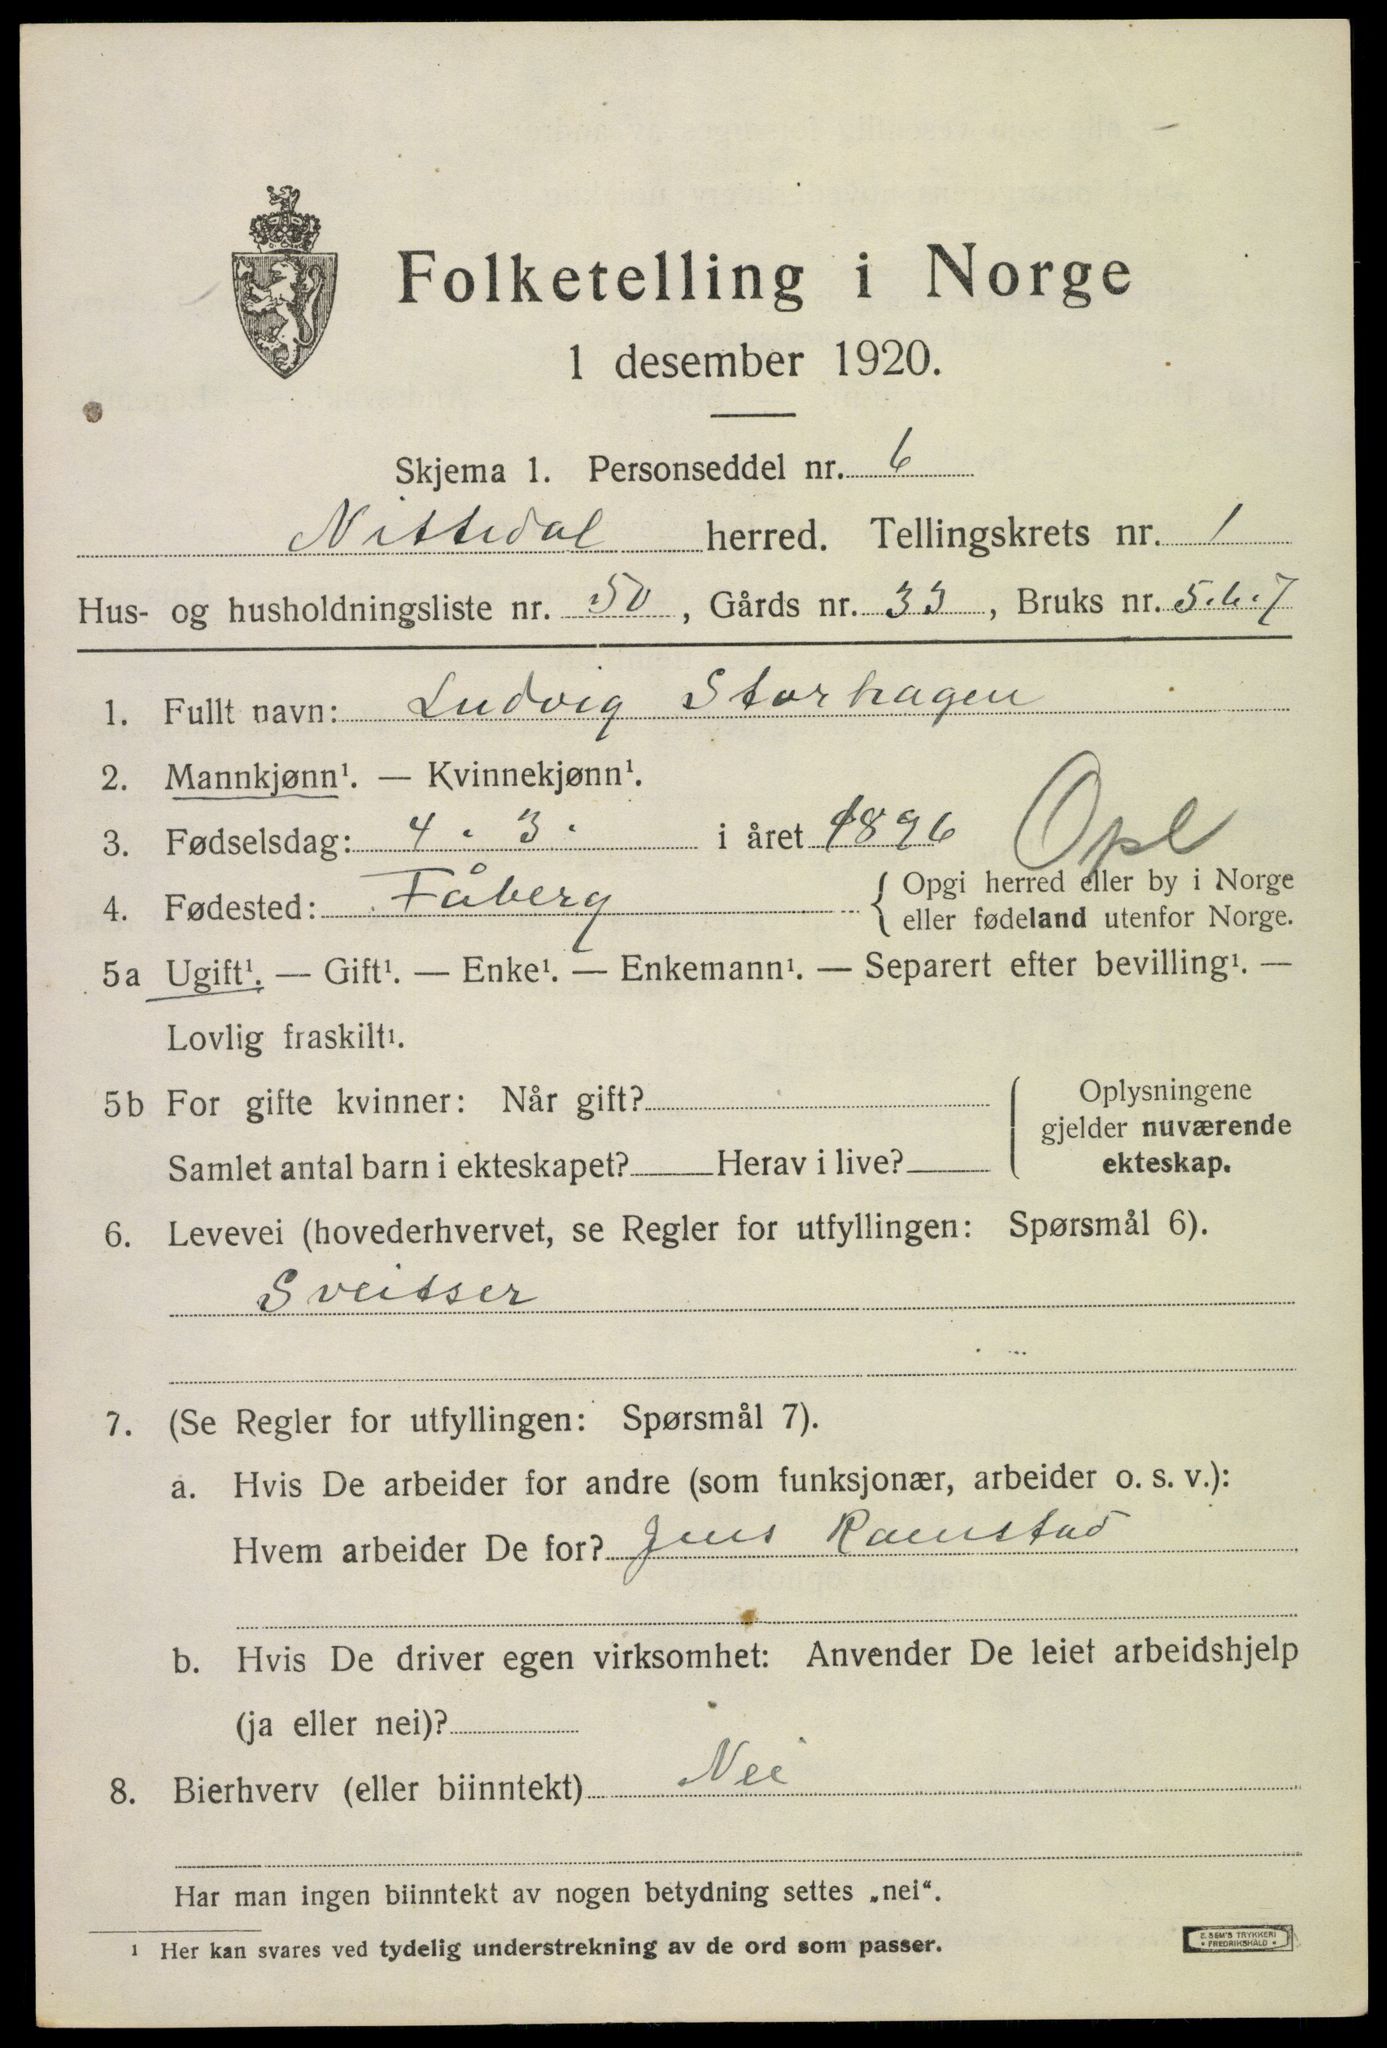 Folketelling i Norge
1 desember 1920.
Skjema 1. Personseddel nr. 6
Nittedal herred. Tellingskrets nr. 1
Hus- og husholdningsliste nr. 50, Gårds nr. 33, Bruks nr. 5.6.7
1. Fullt navn: Ludvig Storhagen
2. Mannkjønn¹. — Kvinnekjønn¹.
3. Fødselsdag: 4. 3. i året 1896 Opl
4. Fødested: Fåberg { Opgi herred eller by i Norge
eller fødeland utenfor Norge.
5a Ugift¹. — Gift¹. — Enke¹. — Enkemann¹. — Separert efter bevilling¹. —
Lovlig fraskilt¹.
5b For gifte kvinner: Når gift? ( Oplysningene
gjelder nuværende
Samlet antal barn i ekteskapet? Herav i live? ekteskap.
6. Levevei (hovederhvervet, se Regler for utfyllingen: Spørsmål 6).
Sveitser
7. (Se Regler for utfyllingen: Spørsmål 7).
a. Hvis De arbeider for andre (som funksjonær, arbeider o. s. v.):
Hvem arbeider De for? Jens Ramstad
b. Hvis De driver egen virksomhet: Anvender De leiet arbeidshjelp
(ja eller nei)?
8. Bierhverv (eller biinntekt) Nei
Har man ingen biinntekt av nogen betydning settes „nei“.
¹ Her kan svares ved tydelig understrekning av de ord som passer.
E. SEM'S TRYKKERI
• FREDRIKSHALD •